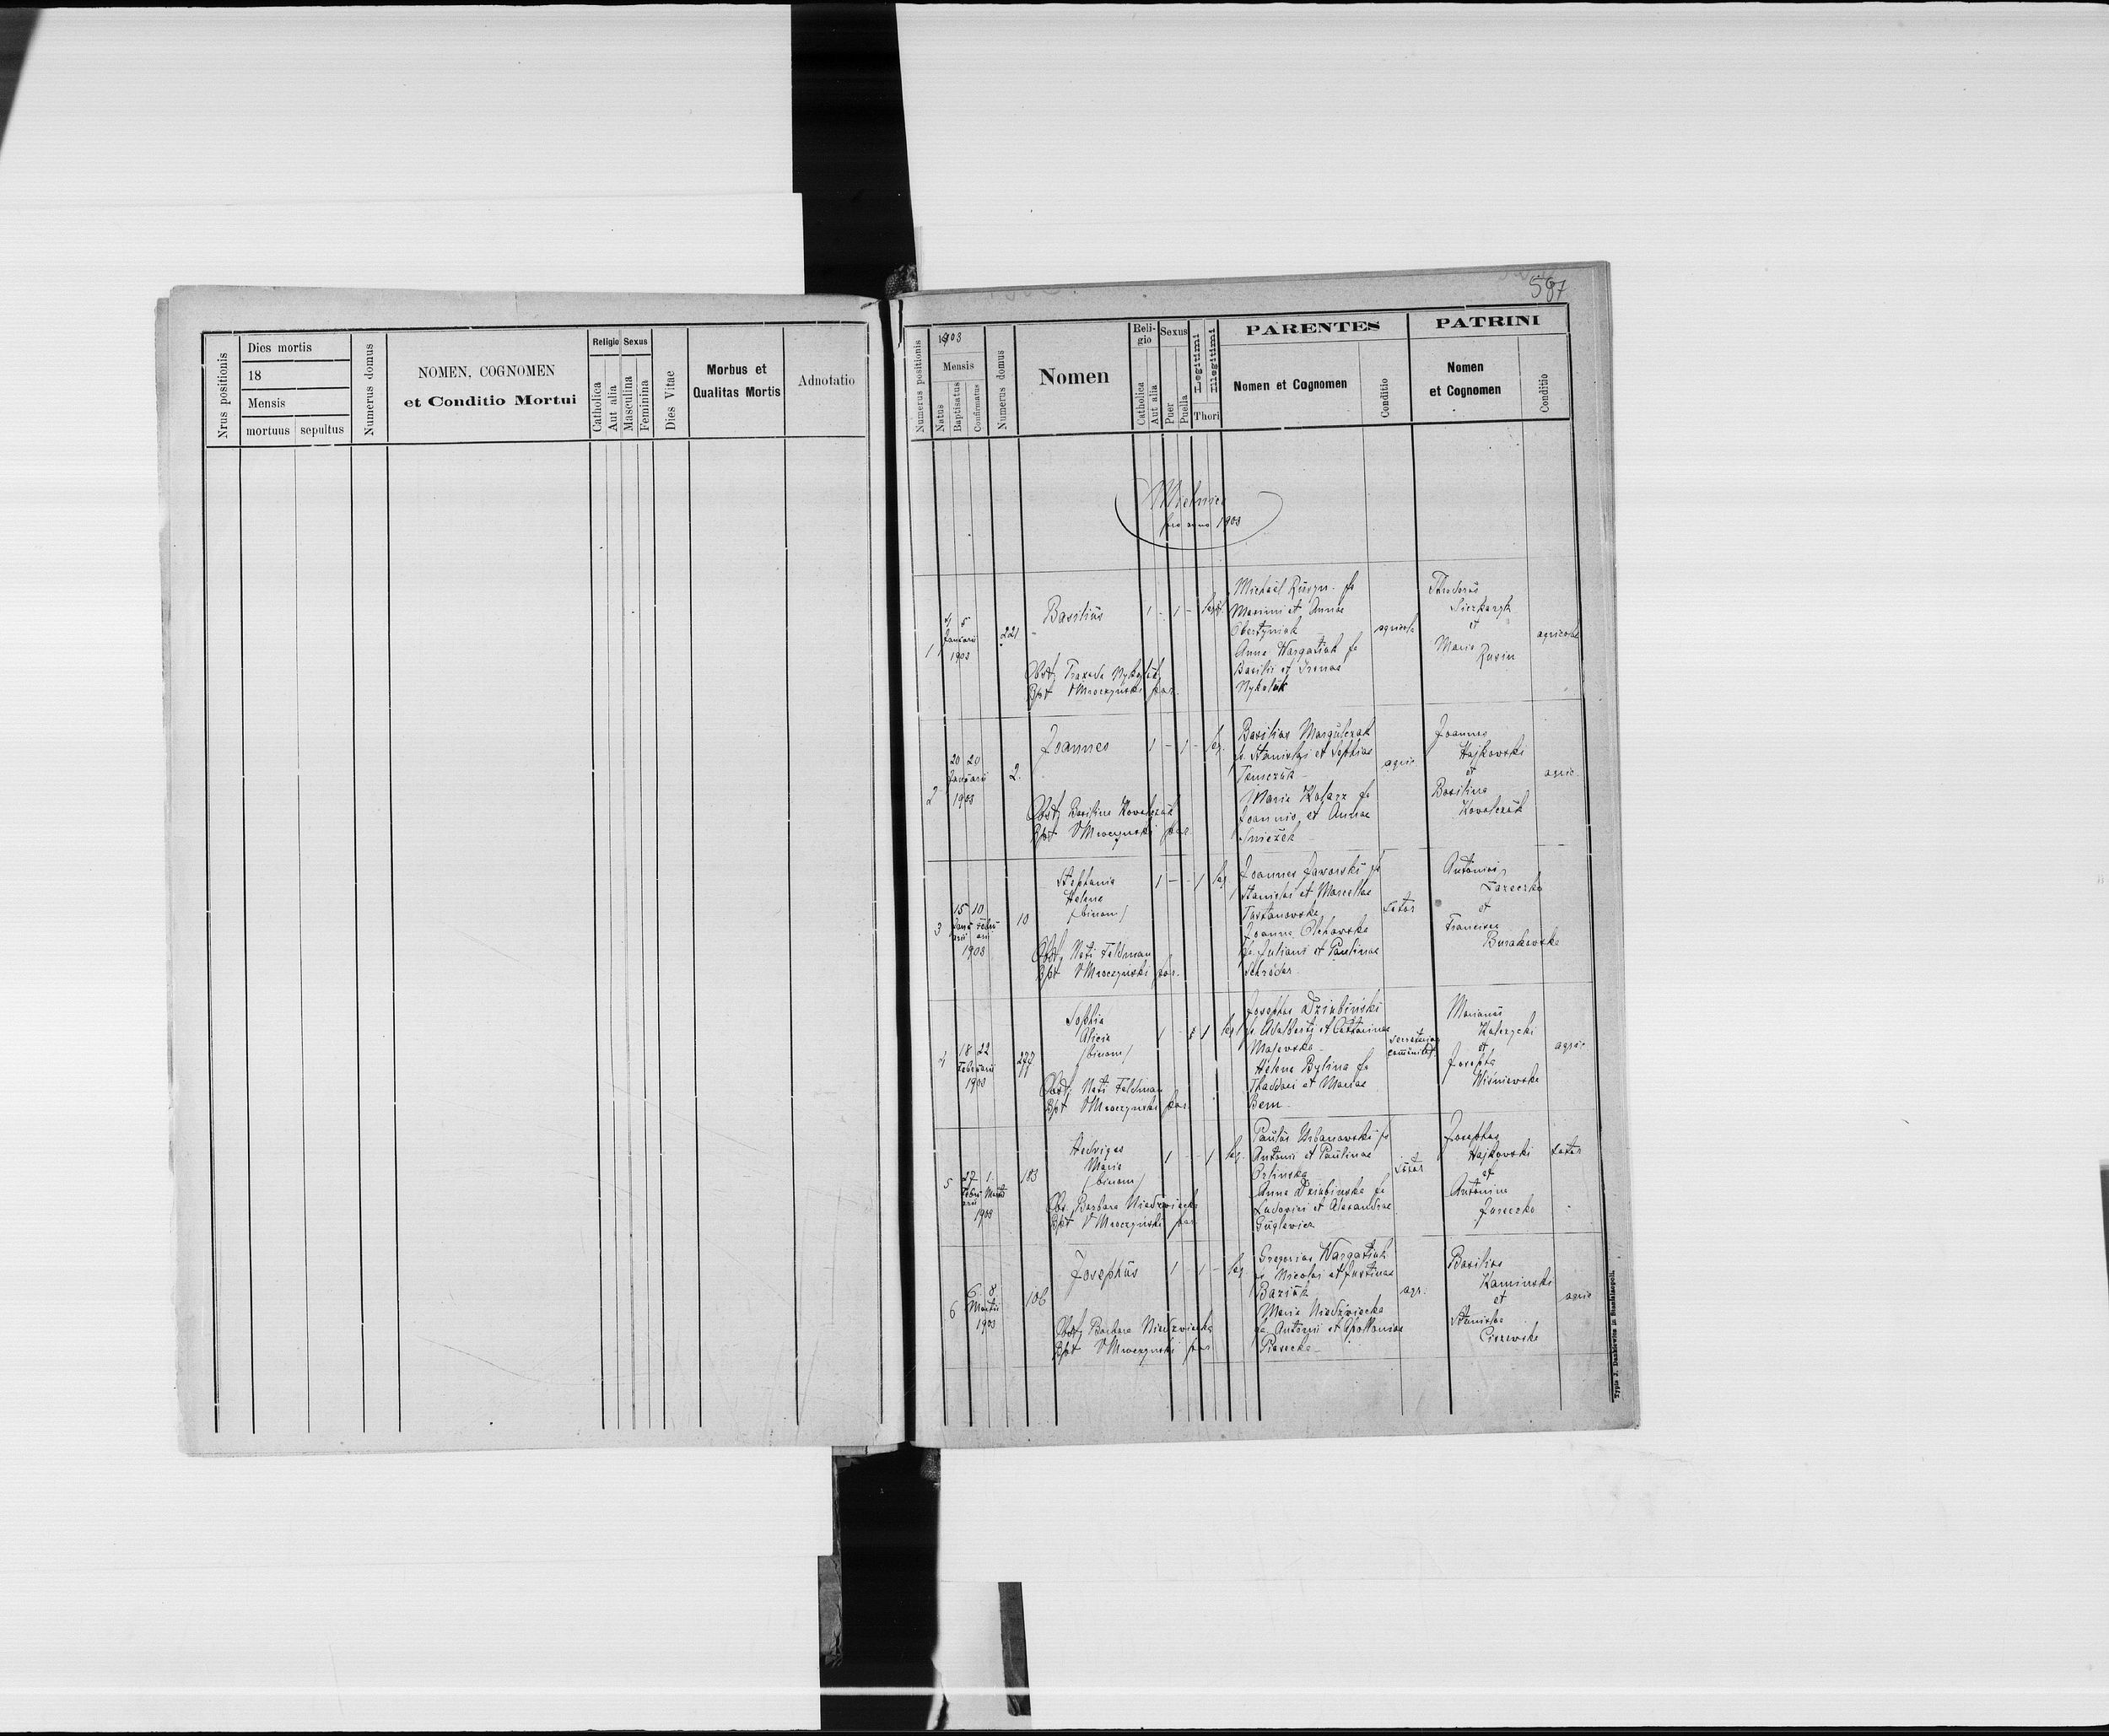 Nrus positionis
Dies mortis
18
Mensis
mortuus sepultus
Numerus domus
NOMEN, COGNOMEN
et Conditio Mortui
Religio Sexus
Catholica
Aut alia
Masculina
Feminina
Dies Vitae
Morbus et
Qualitas Mortis
Adnotatio
587
Numerus positionis
1903
Mensis
Natus
Baptisatus
Confirmatus
Numerus domus
Nomen
Reli-
gio
Catholica
Aut alia
Sexus
Puer
Puella
Legitimi
Illegitimi
Thori
PARENTES
Nomen et Cognomen
Conditio
PATRINI
Nomen
et Cognomen
Conditio
Mielnica
pro anno 1903
1
4 5
Januarii
1903
221
Basilius
1 - 1 -
Obst. Praxeda
Bpt VMroczynski par.
Michael
Maximi et Annae
Obertyniak
Anna Wargatiuk fa
Basilii et Irenae
Nykoluk
agricola
Theodorus
et
Maria
Rusin
agricolae
2
20 20
Januarii
1903
2.
Joannes
1 - 1 - leg.
Obst. Basilina Kowalczuk
Bpt VMroczynski par.
Basilius Margulczak
fs Stanislai et Sophiae
Maria Kolarz fa
Joannis et Annae
agric
Joannes
Hajkowski
et
Basilina
Kowalczuk
agric.
3
15 10
Janu Febru
arii arii
1903
10
Stephania
Helena
/binom/
1 - - 1 leg
Obst. Neti Feldman
Bpt VMroczynski par.
Joannes Jaworski fs
Stanislai et Marcellae
Tustanowska
Joanna Olchowska
fa Juliani et Paulinae
Schröder
Sutor
Antonius
et
Francisca
Burakowska
4
18 22
Februarii
1903
277
Sophia
Alicia
/binom/
1 - - 1 leg
Obst. Neti Feldman
Bpt VMroczynski par.
Josephus Dziubinski
fs Adalberti et Catharinae
Majewska
Helena Bylina fa
Thaddaei et Mariae
Bem
secretarius
comunitat.
Marianus
Kulczycki
et
Josepha
Wiśniewska
agric.
5
27 1.
Febru Martii
arii
1903
183
Hedviges
Maria
/binom/
1 - - 1 leg.
Obs. Barbara Niedzwiecka
Bpt VMroczynski par
Paulus Urbanowski fs
Antonii et Paulinae
Orlinska
Anna Dziubinska fa
Ludovici et Alexandrae
Guglewicz
Sutor
Josephus
Hajkowski
et
Antonina
Sutor
6
6. 8
Martii
1903
106
Josephus
1 - 1 - leg.
Obst. Barbara Niedzwiecka
Bpt VMroczynski par
Gregorius Wargatiuk
fs Nicolai et Justinae
Maria Niedzwiecka
fa Antonii et Apolloniae
Piasecka
agr.
Basilius
Kaminski
et
Stanislaa
Ciszewska
agric
Typis J. Dankiewicz in Stanislaopoli.